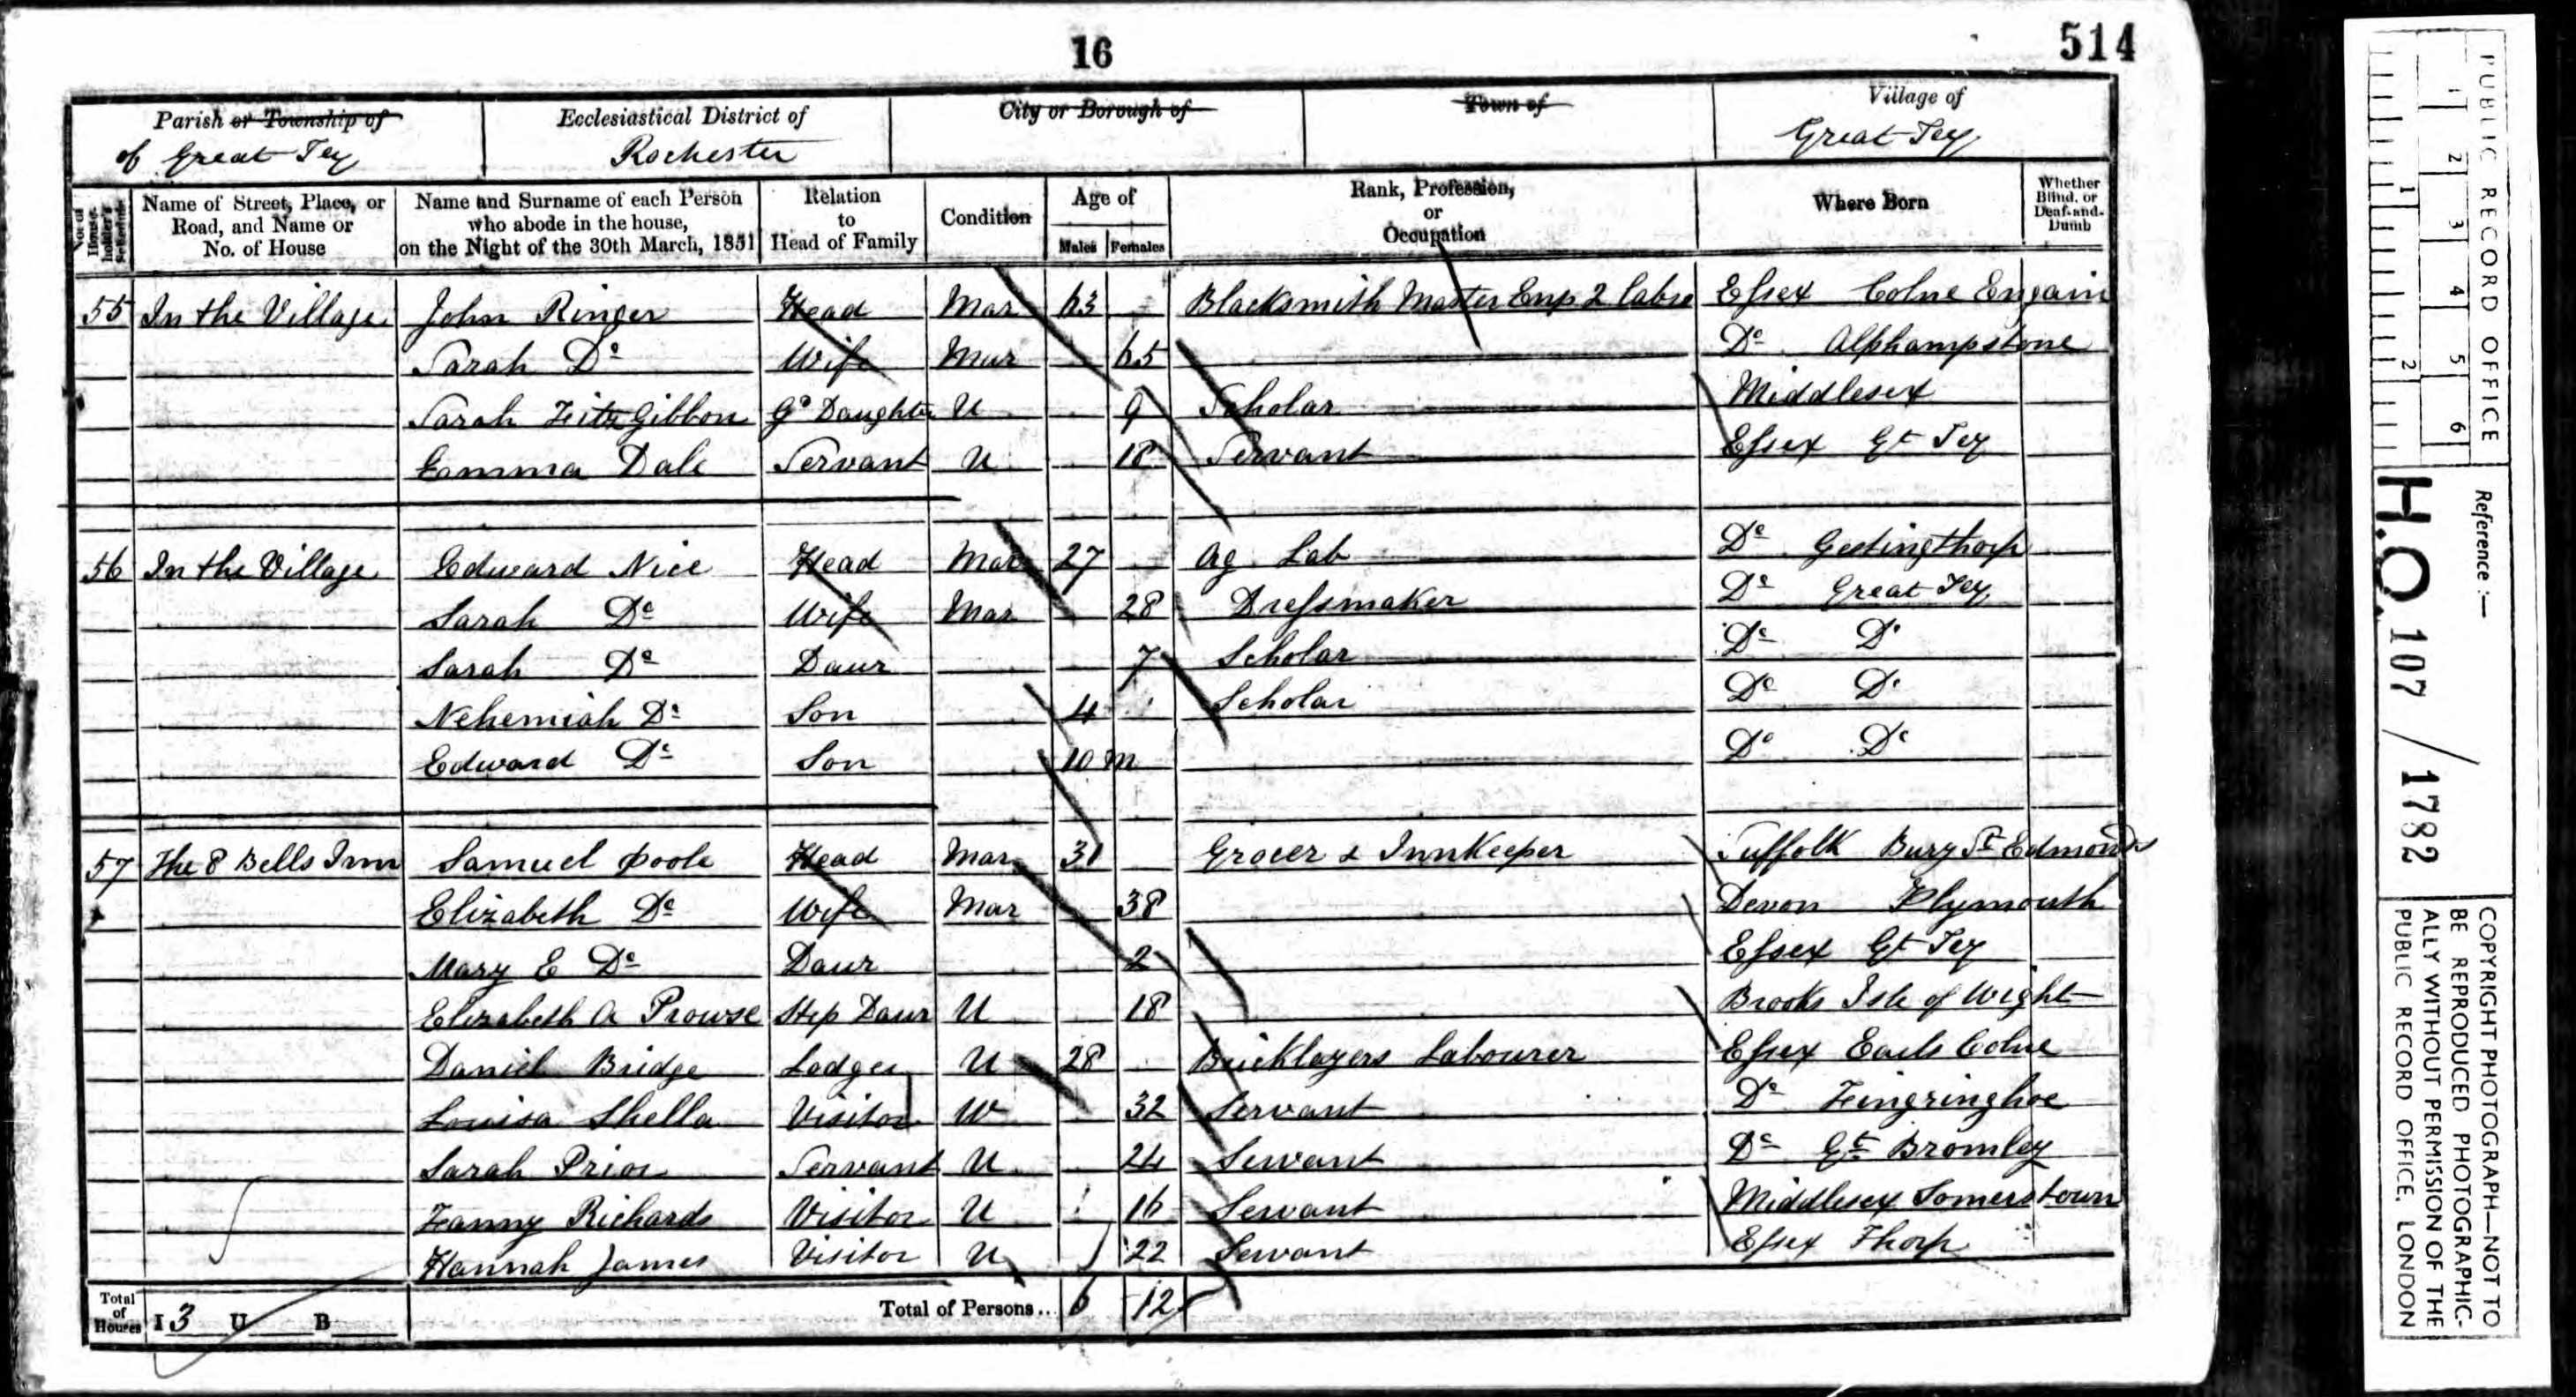 16
514
Parish or Township of
of Great Tey
Ecclesiastical District of
Rochester
City or Borough of
Town of
Village of
Great Tey
No. of House-holder's Schedule
Name of Street, Place, or Road, and Name or No. of House
Name and Surname of each Person who abode in the house, on the Night of the 30th March, 1851
Relation to Head of Family
Condition
Age of
Males Females
Rank, Profession, or Occupation
Where Born
Whether Blind, or Deaf-and-Dumb
55 In the Village John Ringer Head Mar 63 Blacksmith Master Emp 2 labrs Essex Colne Engain
Sarah Do Wife Mar 65 Do Alphampstone
Sarah Fitz Gibbon Gd Daughter U 9 Scholar Middlesex
Emma Dale Servant U 18 Servant Essex Gt Tey
56 In the Village Edward Nice Head Mar 27 Ag Lab Do Gestingthorp
Sarah Do Wife Mar 28 Dressmaker Do Great Tey
Sarah Do Daur 7 Scholar Do Do
Nehemiah Do Son 4 Scholar Do Do
Edward Do Son 10 m Do Do
57 The 8 Bells Inn Samuel Poole Head Mar 31 Grocer & Innkeeper Suffolk Bury St Edmonds
Elizabeth Do Wife Mar 38 Devon Plymouth
Mary E Do Daur 2 Essex Gt Tey
Elizabeth A Prowse Step Daur U 18 Brooks Isle of Wight
Daniel Bridge Lodger U 28 Bricklayers Labourer Essex Earls Colne
Louisa Shella Visitor W 32 Servant Do Fingringhoe
Sarah Prior Servant U 24 Servant Do Gt Bromley
Fanny Richards Visitor U 16 Servant Middlesex Somerstown
Hannah James Visitor U 22 Servant Essex Thorp
Total of Houses I 3 U B Total of Persons .. 6 12
PUBLIC RECORD OFFICE
1 2 3 4 5 6
1 2
Reference :—
H.O. 107 / 1782
COPYRIGHT PHOTOGRAPH—NOT TO
BE REPRODUCED PHOTOGRAPHIC-
ALLY WITHOUT PERMISSION OF THE
PUBLIC RECORD OFFICE, LONDON